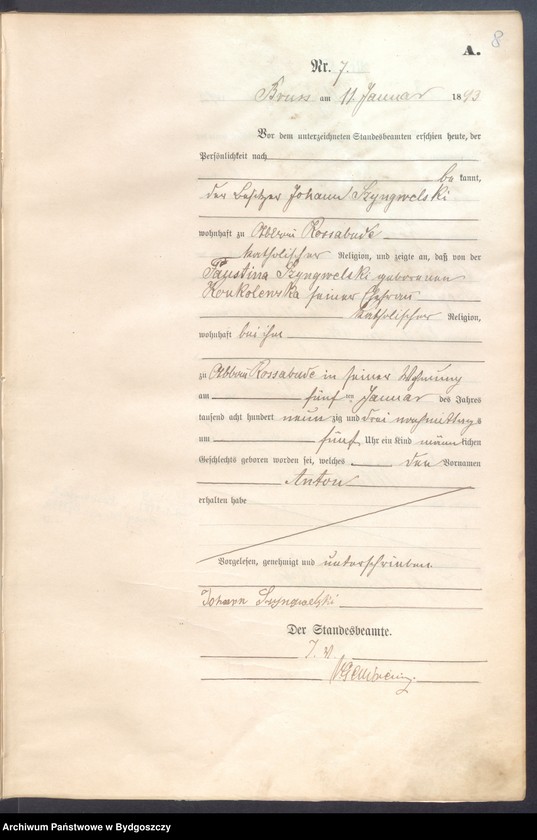 8
A.
Nr. 7.
Bruss am 11 Januar 1893
Vor dem unterzeichneten Standesbeamten erschien heute, der
Persönlichkeit nach
be kannt,
der Besitzer Johann Szyngwelski
wohnhaft zu Abbau Kossabude
katholischer Religion, und zeigte an, daß von der
Faustina Szyngwelski geborenen
Konkolewska seiner Ehefrau
katholischer Religion,
wohnhaft bei ihm
zu Abbau Kossabude in seiner Wohnung
am fünf ten Januar des Jahres
tausend acht hundert neun zig und drei nachmittags
um fünf Uhr ein Kind männ lichen
Geschlechts geboren worden sei, welches den Vornamen
Anton
erhalten habe
Vorgelesen, genehmigt und unterschrieben
Johann Szyngwelski
Der Standesbeamte.
J. V.
Archiwum Państwowe w Bydgoszczy